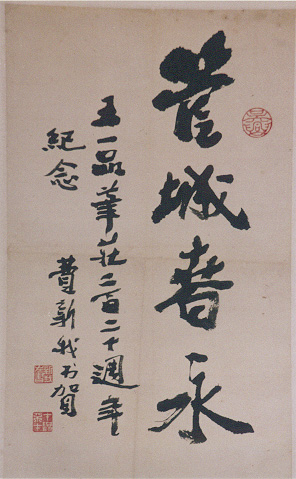 管城春永
王一品筆莊二百二十週年
紀念
費新我书賀